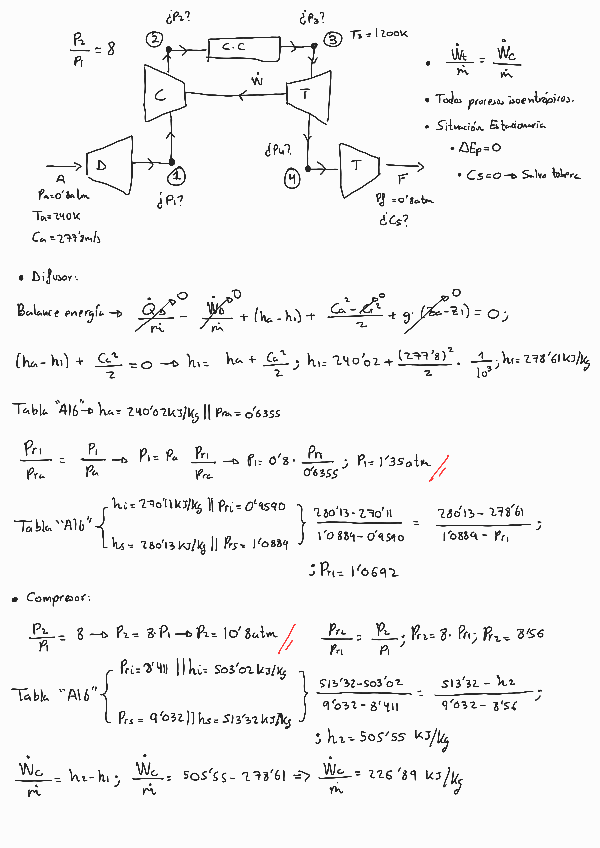 ¿P2?
¿P3?
P2/P1 = 8
2
C.C
3
T3 = 1200K
Ẇ
C
T
• Ẇt/ṁ = Ẇc/ṁ
• Todos procesos isoentrópicos.
• Situación Estacionaria
• ΔEp = 0
• Cs = 0 → Salvo tobera
¿P4?
D
1
4
T
A
F
Pa = 0'8atm
Ta = 240K
Ca = 277'8m/s
¿P1?
Pf = 0'8atm
¿C5?
• Difusor:
Balance energía → Q̇D/ṁ 0 - ẆD/ṁ 0 + (ha - h1) + (Ca² - C1² 0)/2 + g·(Za - Z1) 0 = 0;
(ha - h1) + Ca²/2 = 0 → h1 = ha + Ca²/2; h1 = 240'02 + (277'8)²/2 · 1/10³; h1 = 278'61 KJ/Kg
Tabla "A16" → ha = 240'02 KJ/Kg || Pra = 0'6355
Pr1/Pra = P1/Pa → P1 = Pa Pr1/Pra → P1 = 0'8 · Pr1/0'6355; P1 = 1'35atm
Tabla "A16" { hi = 270'11 KJ/Kg || Pri = 0'9590
hs = 280'13 KJ/Kg || Prs = 1'0889 } (280'13 - 270'11)/(1'0889 - 0'9590) = (280'13 - 278'61)/(1'0889 - Pr1);
; Pr1 = 1'0692
• Compresor:
P2/P1 = 8 → P2 = 8·P1 → P2 = 10'8atm
Pr2/Pr1 = P2/P1; Pr2 = 8·Pr1; Pr2 = 8'56
Tabla "A16" { Pri = 8'411 || hi = 503'02 KJ/Kg
Prs = 9'032 || hs = 513'32 KJ/Kg } (513'32 - 503'02)/(9'032 - 8'411) = (513'32 - h2)/(9'032 - 8'56);
; h2 = 505'55 KJ/Kg
Ẇc/ṁ = h2 - h1; Ẇc/ṁ = 505'55 - 278'61 => Ẇc/ṁ = 226'89 KJ/Kg